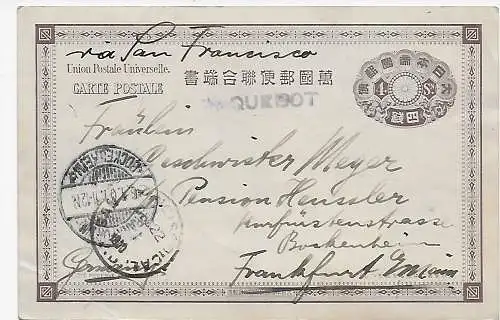 via San Francisco
Union Postale Universelle.
CARTE POSTALE
萬國郵便聯合端書
大日本帝國郵便
PAQUEBOT
Fräulein
Geschwister Meyer
Pension Heussler
Kurfürstenstrasse
Bockenheim
Frankfurt
Germany